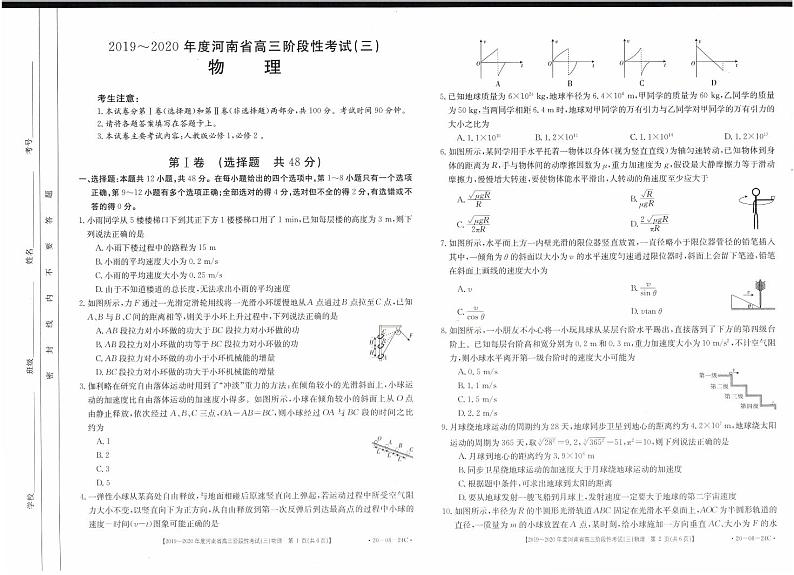 2019～2020 年度河南省高三阶段性考试(三)
物 理
考生注意:
1.本试卷分第Ⅰ卷(选择题)和第Ⅱ卷(非选择题)两部分,共 100 分。考试时间 90 分钟。
2.请将各题答案填写在答题卡上。
3.本试卷主要考试内容:人教版必修 1,必修 2。
第Ⅰ卷 (选择题 共 48 分)
一、选择题:本题共 12 小题,共 48 分。在每小题给出的四个选项中,第 1～8 小题只有一个选项
正确,第 9～12 小题有多个选项正确;全部选对的得 4 分,选对但不全的得 2 分,有选错或不
答的得 0 分。
1.小雨同学从 5 楼楼梯口下到其正下方 1 楼楼梯口用了 1 min,已知每层楼的高度为 3 m,则下
列说法正确的是
A.小雨下楼过程中的路程为 15 m
B.小雨的平均速度大小为 0.2 m/s
C.小雨的平均速度大小为 0.25 m/s
D.由于不知道楼道的总长度,无法求出小雨的平均速度
2.如图所示,力 F 通过一光滑定滑轮用线将一光滑小环缓慢地从 A 点通过 B 点拉至 C 点,已知
A、B 与 B、C 间的距离相等,则关于小环上升过程中,下列说法正确的是
A.AB 段拉力对小环做的功大于 BC 段拉力对小环做的功
B.AB 段拉力对小环做的功等于 BC 段拉力对小环做的功
C.AB 段拉力对小环做的功小于小环机械能的增量
D.BC 段拉力对小环做的功大于小环机械能的增量
3.伽利略在研究自由落体运动时用到了“冲淡”重力的方法:在倾角较小的光滑斜面上,小球运
动的加速度比自由落体运动的加速度小得多。如图所示,小球在倾角较小的斜面上从 O 点
由静止释放,依次经过 A、B、C 三点,OA=AB=BC,则小球经过 OA 与 BC 段的时间之比
约为
A.1
B.2
C.3
D.5
4.一弹性小球从某高处自由释放,与地面相碰后原速竖直向上弹起,若运动过程中所受空气阻
力大小不变,以竖直向下为正方向,从自由释放到第一次反弹后到达最高点的过程中小球的
速度—时间(v-t)图象可能正确的是
【2019～2020 年度河南省高三阶段性考试(三)物理 第 1 页(共 6 页)】
·20-08-24C·
A B C D
5.已知地球质量为 6×10²⁴ kg,地球半径为 6.4×10⁶ m,甲同学的质量为 60 kg,乙同学的质量
为 50 kg,当两同学相距 6.4 m 时,地球对甲同学的万有引力与乙同学对甲同学的万有引力的
大小之比为
6.如图所示,某同学用手水平托着一物体以身体(视为竖直直线)为轴匀速转动,已知物体到身
体的距离为 R,手与物体间的动摩擦因数为 μ,重力加速度为 g,假设最大静摩擦力等于滑动
摩擦力,慢慢增大转速,要使物体能水平滑出,人转动的角速度至少应大于
A. √μgR/R
B. √R/μgR
C. √μgR/2πR
D. 2√μgR/R
7.如图所示,水平面上方一内壁光滑的限位器竖直放置,一直径略小于限位器管径的铅笔插入
其中,一倾角为 θ 的斜面以大小为 v 的水平速度匀速通过限位器时,斜面上会留下笔迹,铅笔
在斜面上画线的速度大小为
A. v
B. v/sin θ
C. v/cos θ
D. vtan θ
8.如图所示,一小朋友不小心将一小玩具球从某层台阶水平踢出,直接落到了下方的第四级台
阶上。已知每层台阶高和宽分别为 0.2 m 和 0.3 m,重力加速度大小为 10 m/s²,不计空气阻
力,则小球水平离开第一级台阶时的速度大小可能为
A.0.5 m/s
B.1.1 m/s
C.1.5 m/s
D.2.2 m/s
第一级
第二级
第三级
第四级
9.月球绕地球运动的周期约为 28 天,地球同步卫星到地心的距离约为 4.2×10⁷ m,地球绕太阳
运动的周期为 365 天,取 ∛28²=9.2,∛365²=51,π²=10,则下列说法正确的是
A.月球到地心的距离约为 3.9×10⁸ m
B.同步卫星绕地球运动的加速度大于月球绕地球运动的加速度
C.根据题中条件,可求出地球到太阳的距离
D.要从地球发射一艘飞船到月球上,发射速度一定要大于地球的第二宇宙速度
10.如图所示,半径为 R 的半圆形光滑轨道 ABC 固定在光滑水平桌面上,AOC 为半圆形轨道的
直径,一质量为 m 的小球放置在 A 点,某时刻,给小球施加一方向垂直 AC、大小为 F 的水
【2019～2020 年度河南省高三阶段性考试(三)物理 第 2 页(共 6 页)】
·20-08-24C·
考号
姓名
班级
学校
密 封 线 内 不 要 答 题